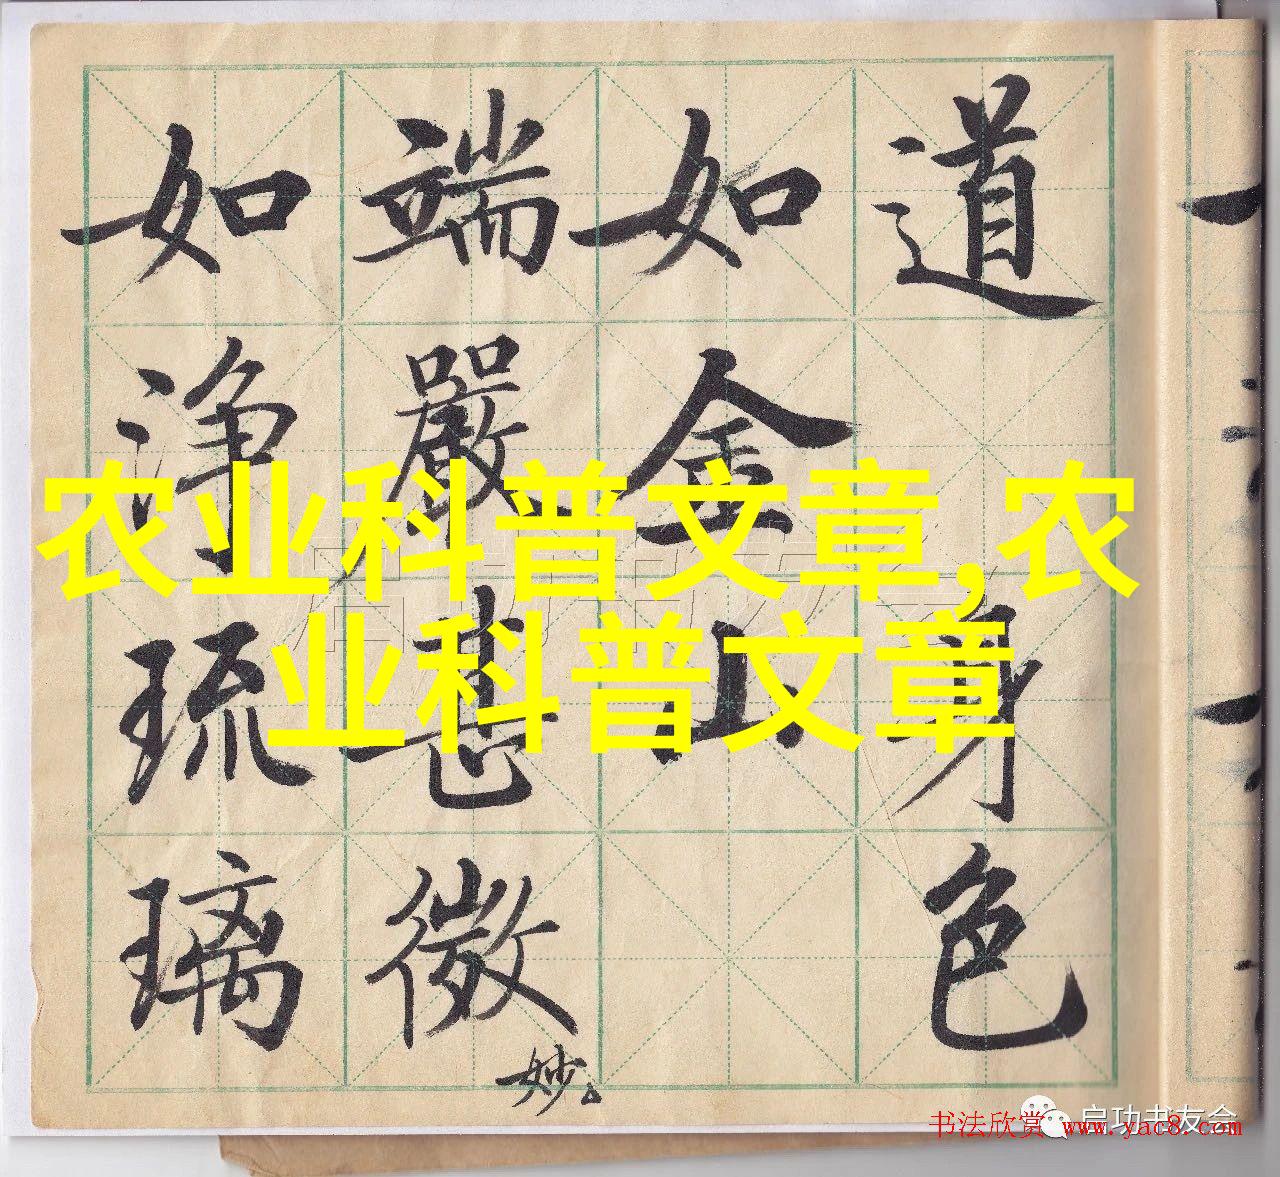 道身色
如金山
端嚴甚微妙
如浄琉璃
农业科普文章,农
业科普文章
启功书友会
书法欣赏 www.yac8.com